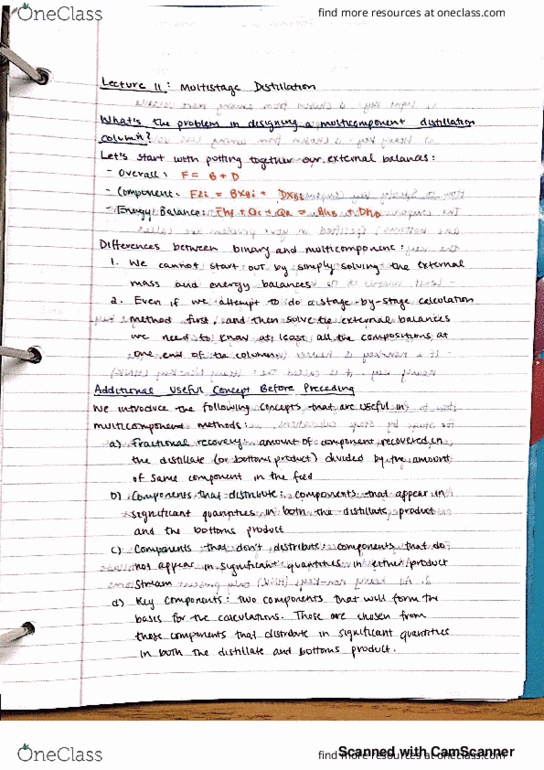 OneClass
find more resources at oneclass.com
Lecture 11: Multistage Distillation
What's the problem in designing a multicomponent distillation
column?
Let's start with putting together our external balances:
- Overall: F = B + D
- Component: Fzi = BxBi + DxDi
- Energy Balance: FhF + Qc + QR = BhB + DhD
Differences between binary and multicomponent:
1. We cannot start out by simply solving the external
mass and energy balances
2. Even if we attempt to do a stage-by-stage calculation
method first, and then solve the external balances
we need to know at least all the compositions at
one end of the column
Additional Useful Concept Before Preceding
We introduce the following concepts that are useful in
multicomponent methods:
a) Fractional recovery: amount of component recovered in
the distillate (or bottoms product) divided by the amount
of same component in the feed
b) Components that distribute: components that appear in
significant quantities in both the distillate product
and the bottoms product
c) Components that don't distribute: components that do
not appear in significant quantities in either product
stream
d) Key components: two components that will form the
basis for the calculations. These are chosen from
those components that distribute in significant quantities
in both the distillate and bottoms product.
OneClass
find more resources at oneclass.com
Scanned with CamScanner